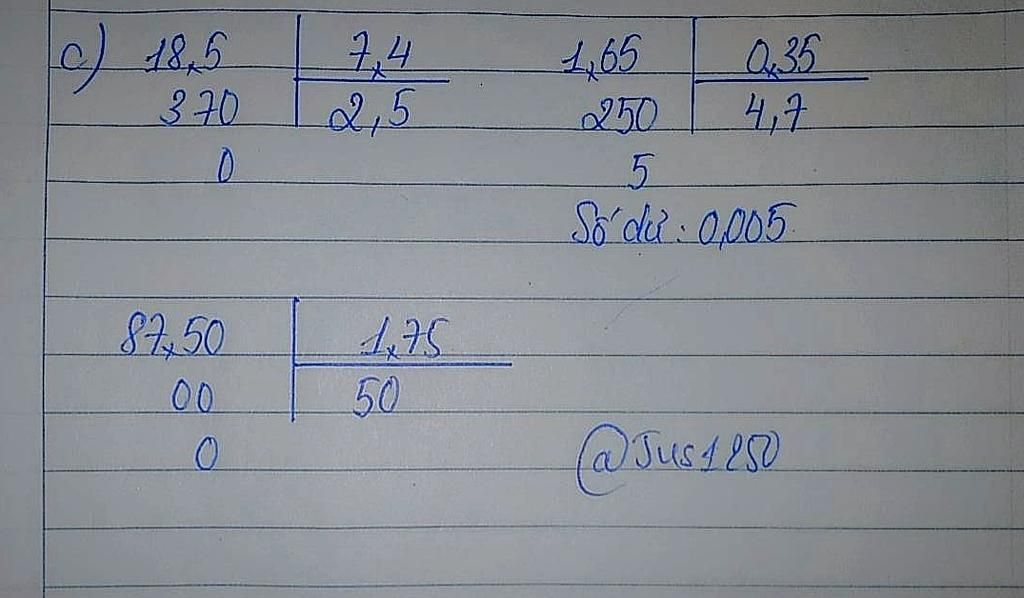 c) 18,5 7,4 1,65 0,35
370 2,5 250 4,7
0 5
Số dư : 0,005
87,50 1,75
00 50
0
@Jus1250